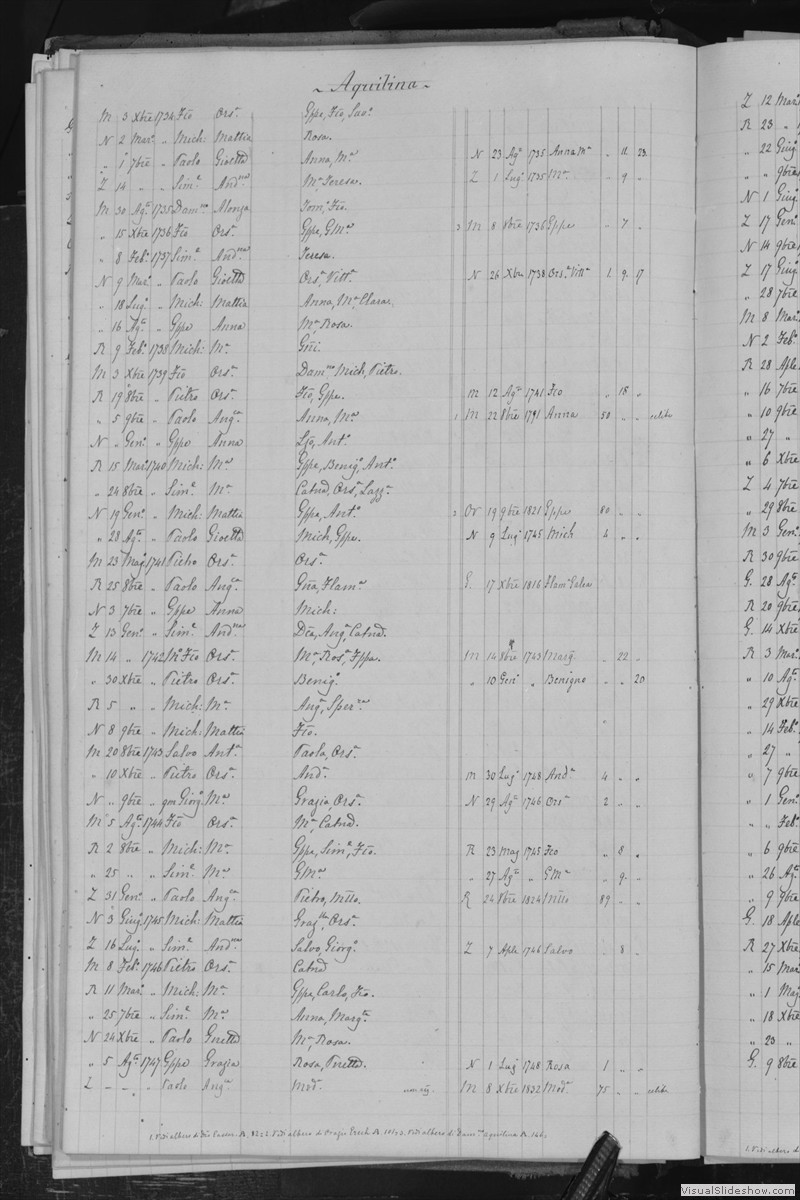 Aquilina
M 3 Xbre 1734 Fco Orsa. Gppe, Fco, Savo.
N 2 Maro. „ Mich: Mattia Rosa.
„ 1 7bre „ Paolo Gioetta Anna, Ma. N 23 Ago 1735 Anna Ma „ 11 23
Z 14 „ „ Sime. Andna Ma. Teresa. Z 1 Lug 1735 Ma. „ 9 „
M 30 Ago. 1735 Damno Alonza Tom, Fco.
„ 15 Xbre 1736 Fco Orsa. Gppe, GMa. 3 M 8 8bre 1736 Gppe „ 7 „
„ 8 Febo. 1737 Sime. Andna Teresa.
N 9 Maro. „ Paolo Gioetta Orsa. Vitta. N 26 Xbre 1738 Orsa. Vitta 1 9 17
„ 18 Lugo. „ Mich: Mattia Anna, Ma, Clara.
„ 16 Ago. „ Gppe Anna Ma. Rosa.
R 9 Febo. 1738 Mich: Ma. Gñi.
M 3 Xbre 1739 Fco Orsa. Damno Mich, Pietro.
R 19 8bre „ Pietro Orsa. Fco, Gppe. M 12 Ago 1741 Fco „ 18 „
„ 5 9bre „ Paolo Anga. Anna, Ma. 1 M 22 8bre 1791 Anna 50 „ „ celibe
N „ Geno. „ Gppe Anna Anto.
R 15 Maro. 1740 Mich: Ma Gppe, Benigo, Anto.
„ 24 8bre „ Sime. Ma. Catnd, Orsa, Lazza.
N 19 Geno. „ Mich: Mattia Gppe, Anto. 2 Ov 19 9bre 1821 Gppe 80 „ „
„ 28 Ago. „ Paolo Gioetta Mich, Gppe. N 9 Lug 1745 Mich 4 „ „
M 23 Mago. 1741 Pietro Orsa. Orsa.
R 25 8bre „ Paolo Anga. Gña, Flama. G. 17 Xbre 1816 Flama
N 3 7bre „ Gppe Anna Mich:
Z 13 Geno. „ Sime. Andna Anga, Catnd.
M 14 „ 1742 Fco Orsa. Ma, Rosa, Fppa. M 14 8bre 1743 Marg „ 22 „
„ 30 Xbre „ Pietro Orsa. Benigo. „ 10 Gen „ Benigno „ „ 20
R 5 „ „ Mich: Ma. Anga, Sperza
N 8 9bre „ Mich: Mattia Fco.
M 20 8bre 1743 Salvo Anta. Paola, Orsa.
„ 10 Xbre „ Pietro Orsa. Anda. M 30 Lug 1748 Anda 4 „ „
N „ 9bre „ qm Giorgo Ma Grazia, Orsa. N 29 Ago 1746 Orsa 2 „ „
M 5 Ago. 1744 Fco Orsa. Ma, Catnd.
R 2 8bre „ Mich: Ma. Gppe, Sime, Fco. R 23 Mag 1745 Fco „ 8 „
„ 25 „ „ Sime. Ma GMa. „ 27 Ago „ GMa „ 9 „
Z 31 Geno. „ Paolo Anga. Pietro, Mllo. R 24 8bre 1824 Mllo 89 „ „
N 3 Giugo 1745 Mich: Mattia Grazlla, Orsa.
Z 16 Lugo. „ Sime. Andna Salvo, Giorgo. Z 7 Aple 1746 Salvo „ 8 „
M 8 Febo. 1746 Pietro Orsa. Catnd
R 11 Maro. „ Mich: Ma. Gppe, Carlo, Fco.
„ 25 7bre „ Sime. Ma Anna, Marga.
N 24 Xbre „ Paolo Ma, Rosa.
„ 5 Ago. 1747 Gppe Grazia Rosa, Pnetta. N 1 Lug 1748 Rosa 1 „ „
Z – – „ Paolo Anga. Moda. M 8 Xbre 1832 Moda. 75 „ „ celibe
Z 12 Maro.
R 23 „
„ 22 Giugo
„ „ 9bre
N 1 Giugo
Z 17 Geno.
N 14 9bre
Z 17 Giugo
„ 28 7bre
M 8 Maro.
N 2 Febo.
R 28 Aple
„ 16 7bre
„ 10 9bre
„ 27 „
„ 6 Xbre
Z 4 7bre
„ 29 8bre
M 3 Geno.
R 30 9bre
G. 28 Ago.
R 20 9bre
G. 14 Xbre
R 3 Maro.
„ 10 Ago.
„ 29 Xbre
„ 14 Febo.
„ 27 „
„ 7 9bre
„ 1 Geno.
„ „ Febo.
„ 6 9bre
„ 26 Ago.
„ 9 9bre
G. 18 Aple
R 27 Xbre
„ 15 Maro
„ 1 Mag
„ 18 Xbre
„ 23 „
G. 9 8bre
VisualSlideshow.com